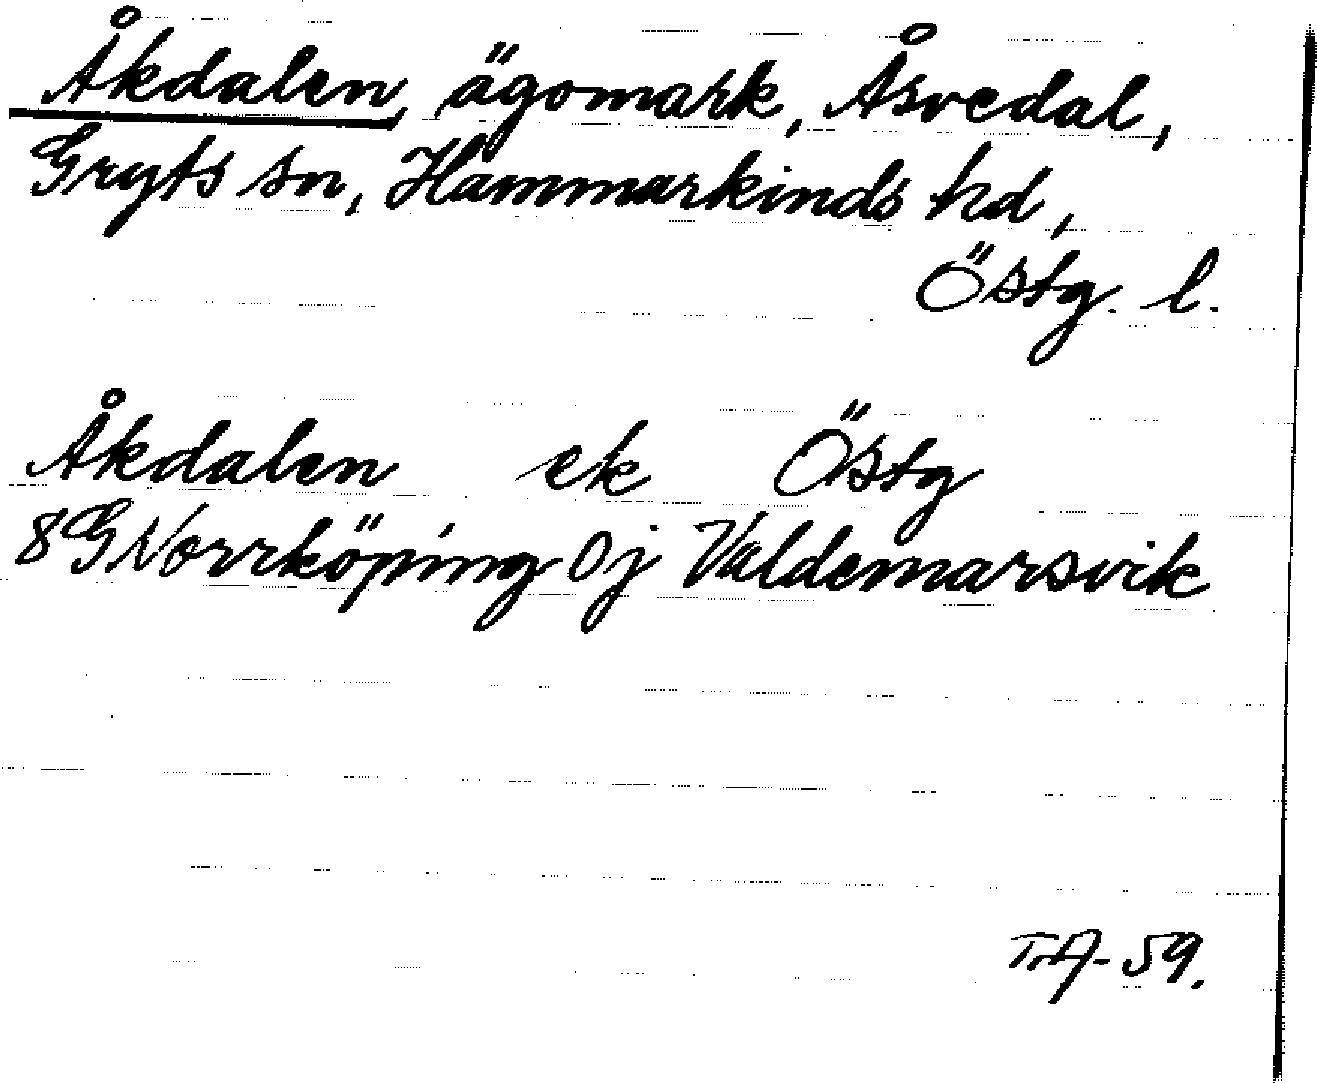 Åkdalen, ägomark, Åsvedal,
Gryts sn, Hammarkinds hd,
Östg. l.
Åkdalen ek Östg
8G Norrköping 0j Valdemarsvik
59.